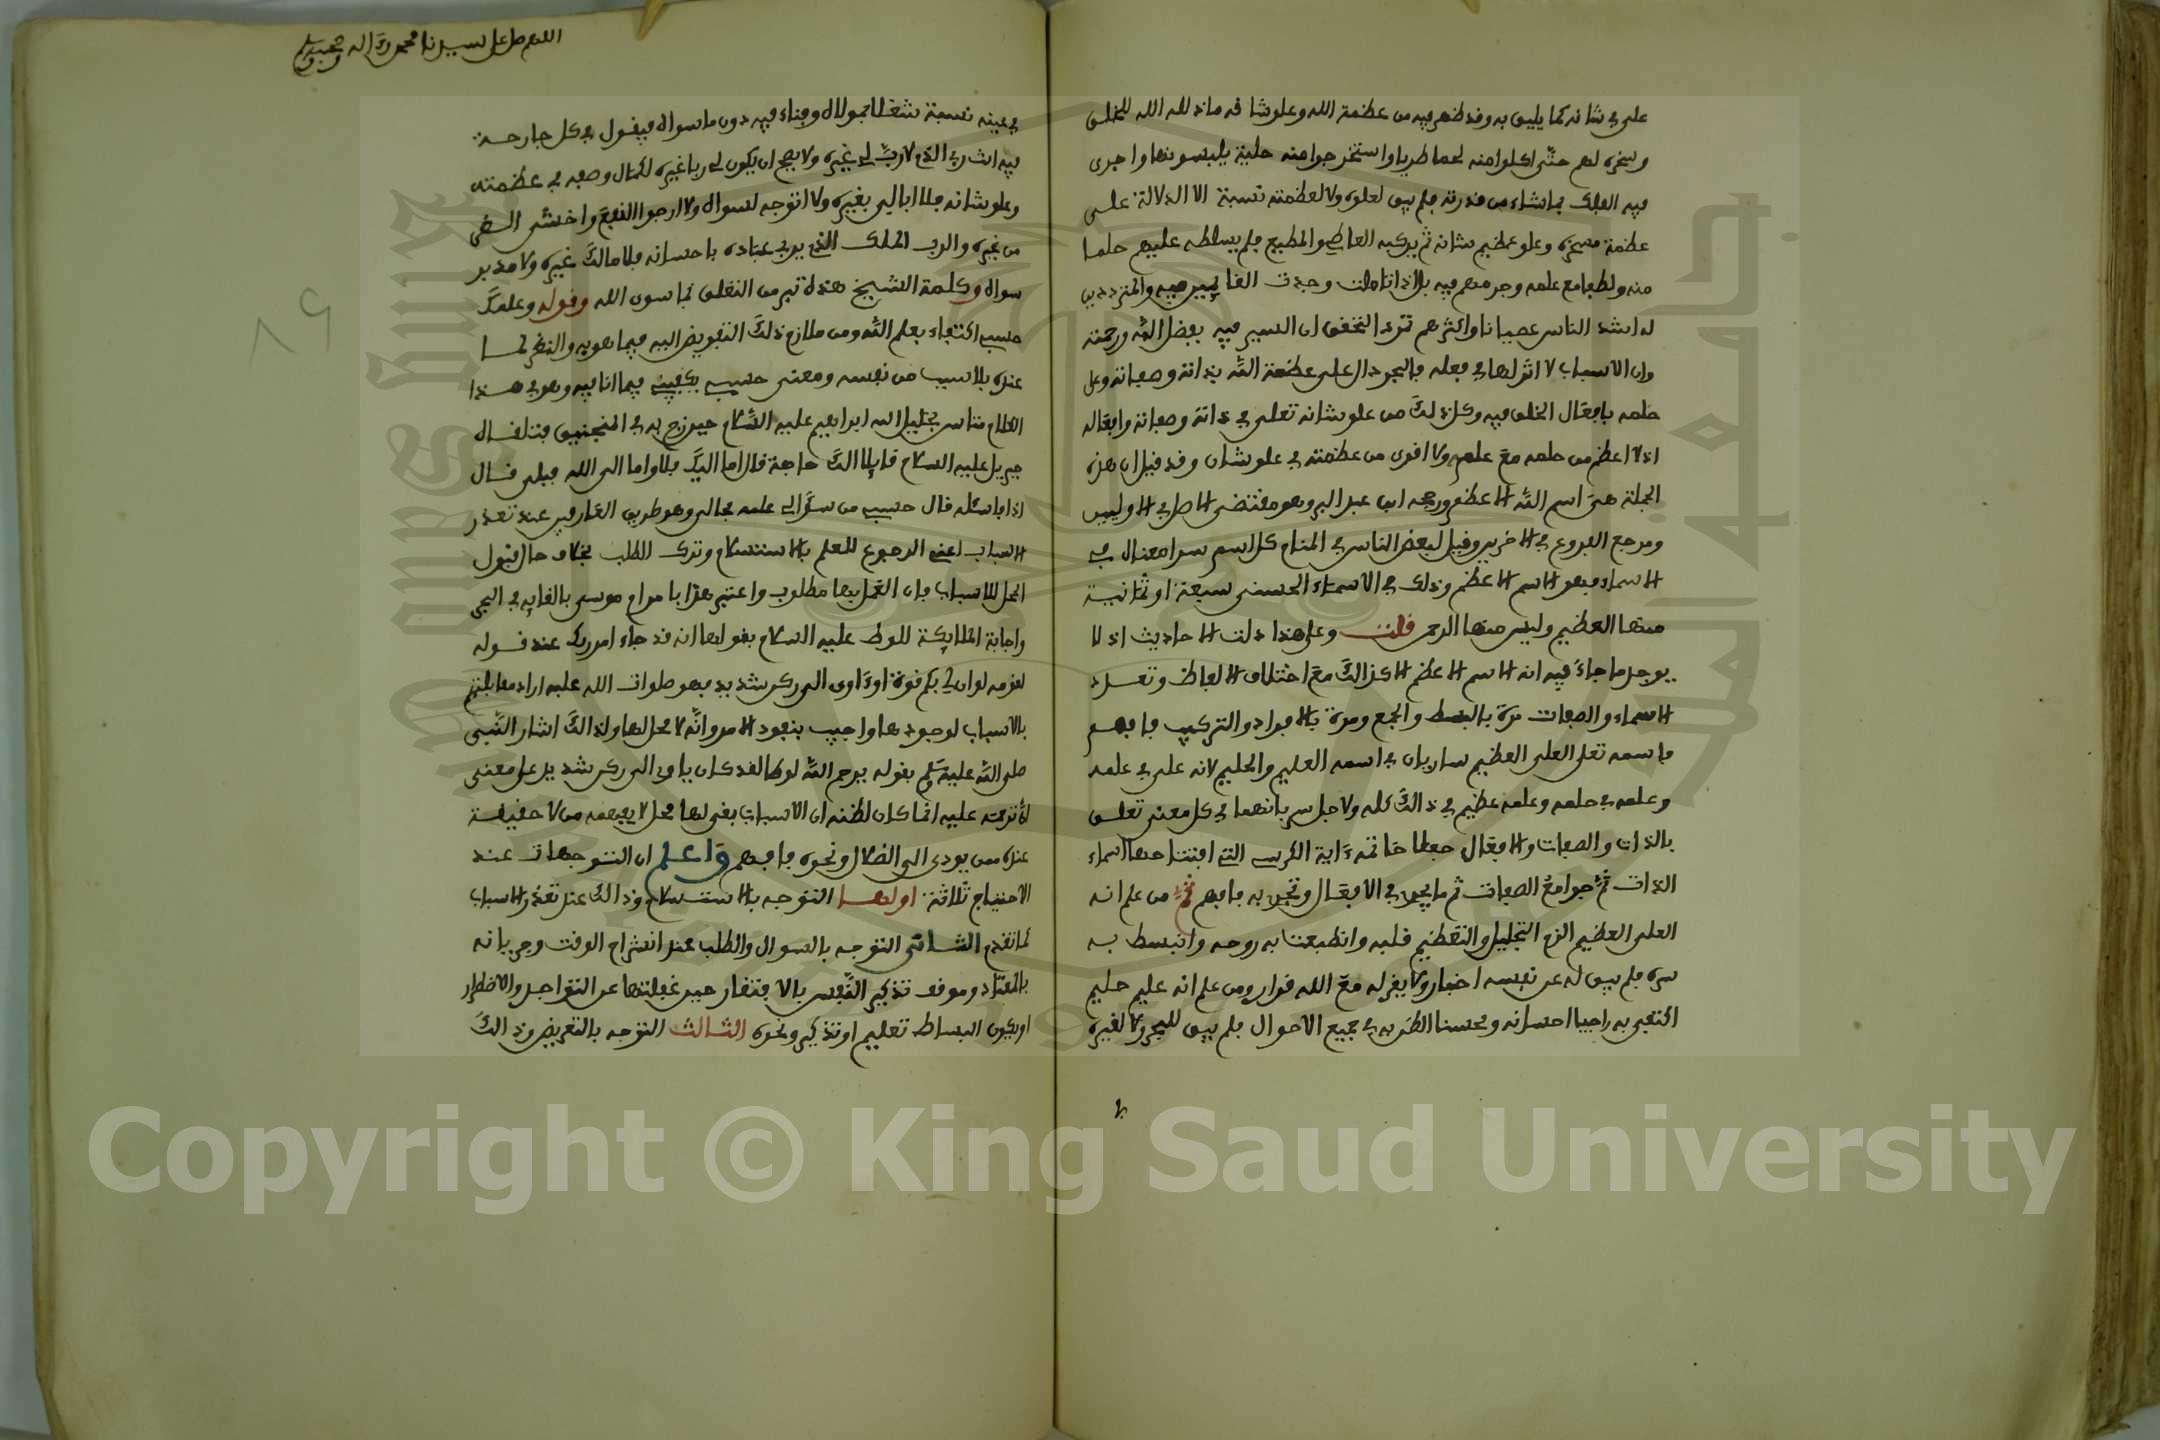 على في شانه كما يليق به وقد ظهر فيه من عظمة الله وعلو شانه ما ذلله الله للخلق
وسخره لهم حتى اكلوا منه لحما طريا واستخرجوا منه حلية يلبسونها واجرى
فيه الفلك بما شاء من قدرته فلم يبق لعلوه ولا لعظمته نسبة الا الدلالة على
عظمة مسخره وعلو عظيم شانه ثم يركبه العاصي والمطيع فلم يسلطه عليهم حلما
منه ولطفا مع علمه وجرمهم فيه بل اذا تاملت وجدت الغايبين فيه والمترددين
له اشد الناس عصيانا واكثرهم تمردا لتحقق ان السير فيه بفضل الله ورحمته
وان الاسباب لا اثر لها في فعله فالبحر دال على عظمة الله بذاته وصفاته وعلى
حلمه بافعال الخلق فيه وكل ذلك من علو شانه تعلى في ذاته وصفاته وافعاله
اذ لا اعظم من حلمه مع علمه ولا اقوى من عظمته في علو شان وقد قيل ان هذه
الجملة هي اسم الله الاعظم ورجحه ابن عبد البر وهو مقتضى الاصل في الاوليين
ومرجع الفروع في الاخرين وقيل لبعض الناس في المنام كل اسم سرا معناه في
الاسماء فهو الاسم الاعظم وذلك في الاسماء الحسنى سبعة او ثمانية
منها العظيم وليس منها الرحمن قلت وعلى هذا دلت الاحاديث اذ لا
يوجد ما جاء فيه انه الاسم الاعظم الا كذالك مع اختلاف الالفاظ وتعدد
الاسماء والصفات مرة بالبسط والجمع ومرة بالافراد والتركيب فافهم
فاسمه تعلى العلي العظيم ساريان في اسمه العليم والحليم لانه علي في علمه
وعلمه في حلمه وعلمه عظيم في ذالك كله ولاجل سريانهما في كل معنى تعلق
بالذات والصفات والافعال جعلا خاتمة ءاية الكرسي التي افتتاحها اسماء
الذات ثم جوامع الصفات ثم ما يجري في الافعال وتجري به فافهم ثم من علم انه
العلي العظيم الزم التجليل والتعظيم قلبه وانطبعت به روحه وانبسط به
سره فلم يبق له عن نفسه اخبار ولا بغيره مع الله قرار ومن علم انه عليم حليم
اكتفى به راجيا احسانه ومحسنا الظن به في جميع الاحوال فلم يبق للبحر ولا لغيره
اللهم صل على سيدنا محمد وءاله وصحبه وسلم
في عينه نسبة شغلا بمولاه وفناء فيه دون ما سواه فيقول في كل جارحة
فيه انت ربي الذي لا رب لي غيره ولا يصح ان يكون لي ربا غيره لكمال وصفه في عظمته
وعلو شانه فلا ابالي بغيره ولا اتوجه لسواه ولا ارجوا النفع واخشى الضر
من غيره والرب الملك الذي يربي عباده باحسانه فلا مالك غيره ولا مدبر
سواه وكلمة الشيخ هذه تبر من التعلق بما سوى الله وقوله وعلمك
حسبي اكتفاء بعلم الله ومن ملازم ذلك التفويض اليه فيما هو به والنظر لما
عنده بلا سبب من نفسه ومعنى حسبي يكفيني فيما انا فيه وهو في هذا
الكلام متاس بخليل الله ابراهيم عليه السلام حين زج به في المنجنيق فتلقاه
جبريل عليه السلام قايلا الك حاجة قال اما اليك فلا واما الى الله فبلى قال
اذا فاسئله قال حسبي من سؤالي علمه بحالي وهو طريق العارفين عند تعذر
الاسباب اعني الرجوع للعلم بالاستسلام وترك الطلب بخلاف حال قبول
المحل للاسباب فان العمل بها مطلوب واعتبر هذا بامر ام موسى بالقايه في اليم
واجابة الملايكة للوط عليه السلام بقولها انه قد جاء امر ربك عند قوله
لقومه لو ان لي بكم قوة او ءاوي الى ركن شديد فهو صلوات الله عليه اراد مقابلتهم
بالاسباب لوجودها واجيب بنفوذ الامر وانه لا محل لها ولذالك اشار النبي
صلى الله عليه وسلم بقوله يرحم الله لوطا لقد كان ياوي الى ركن شديد على معنى
ان ترحمه عليه انما كان لظنه ان الاسباب بقي لها محل لا يفهمه من لا حقيقة
عنده ممن يودى الى الضلال ونحوه فافهم واعلم ان التوجهات عند
الاحتياج ثلاثة اولها التوجه بالاستسلام وذالك عند تعذر الاسباب
كما تقدم الثاني التوجه بالسوال والطلب عند انشراح الوقت وجريانه
بالمعتاد وموقعه تذكير النفس بالافتقار حين غفلتها عن التواجد والاضطرار
او يكون البساط تعليم او تذكير ونحوه الثالث التوجه بالتعريض وذالك